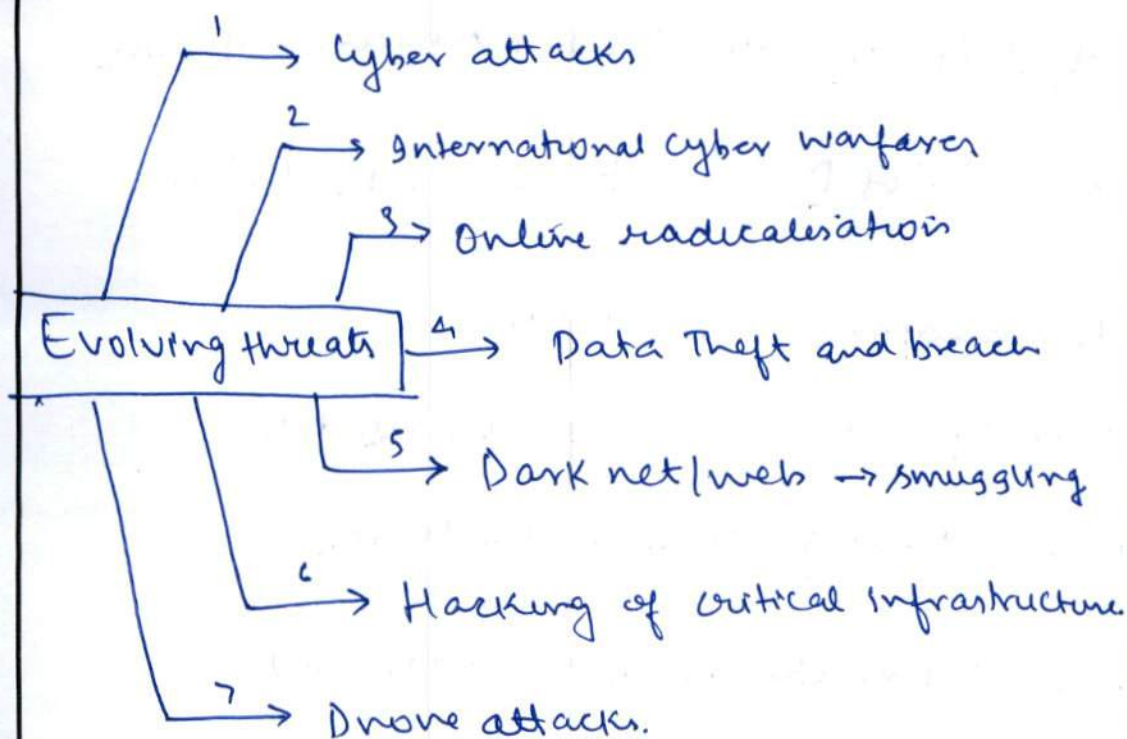 1 → Cyber attacks
2 → International cyber warfares
3 → Online radicalisation
Evolving threats 4 → Data Theft and breach
5 → Dark net/web → smuggling
6 → Hacking of critical infrastructure
7 → Drone attacks.